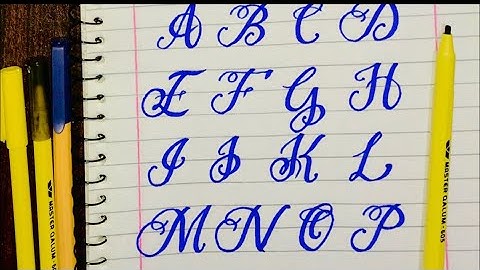 A B C D
E F G H
I J K L
M N O P
MASTER QALUM-605
MASTER QALUM-605